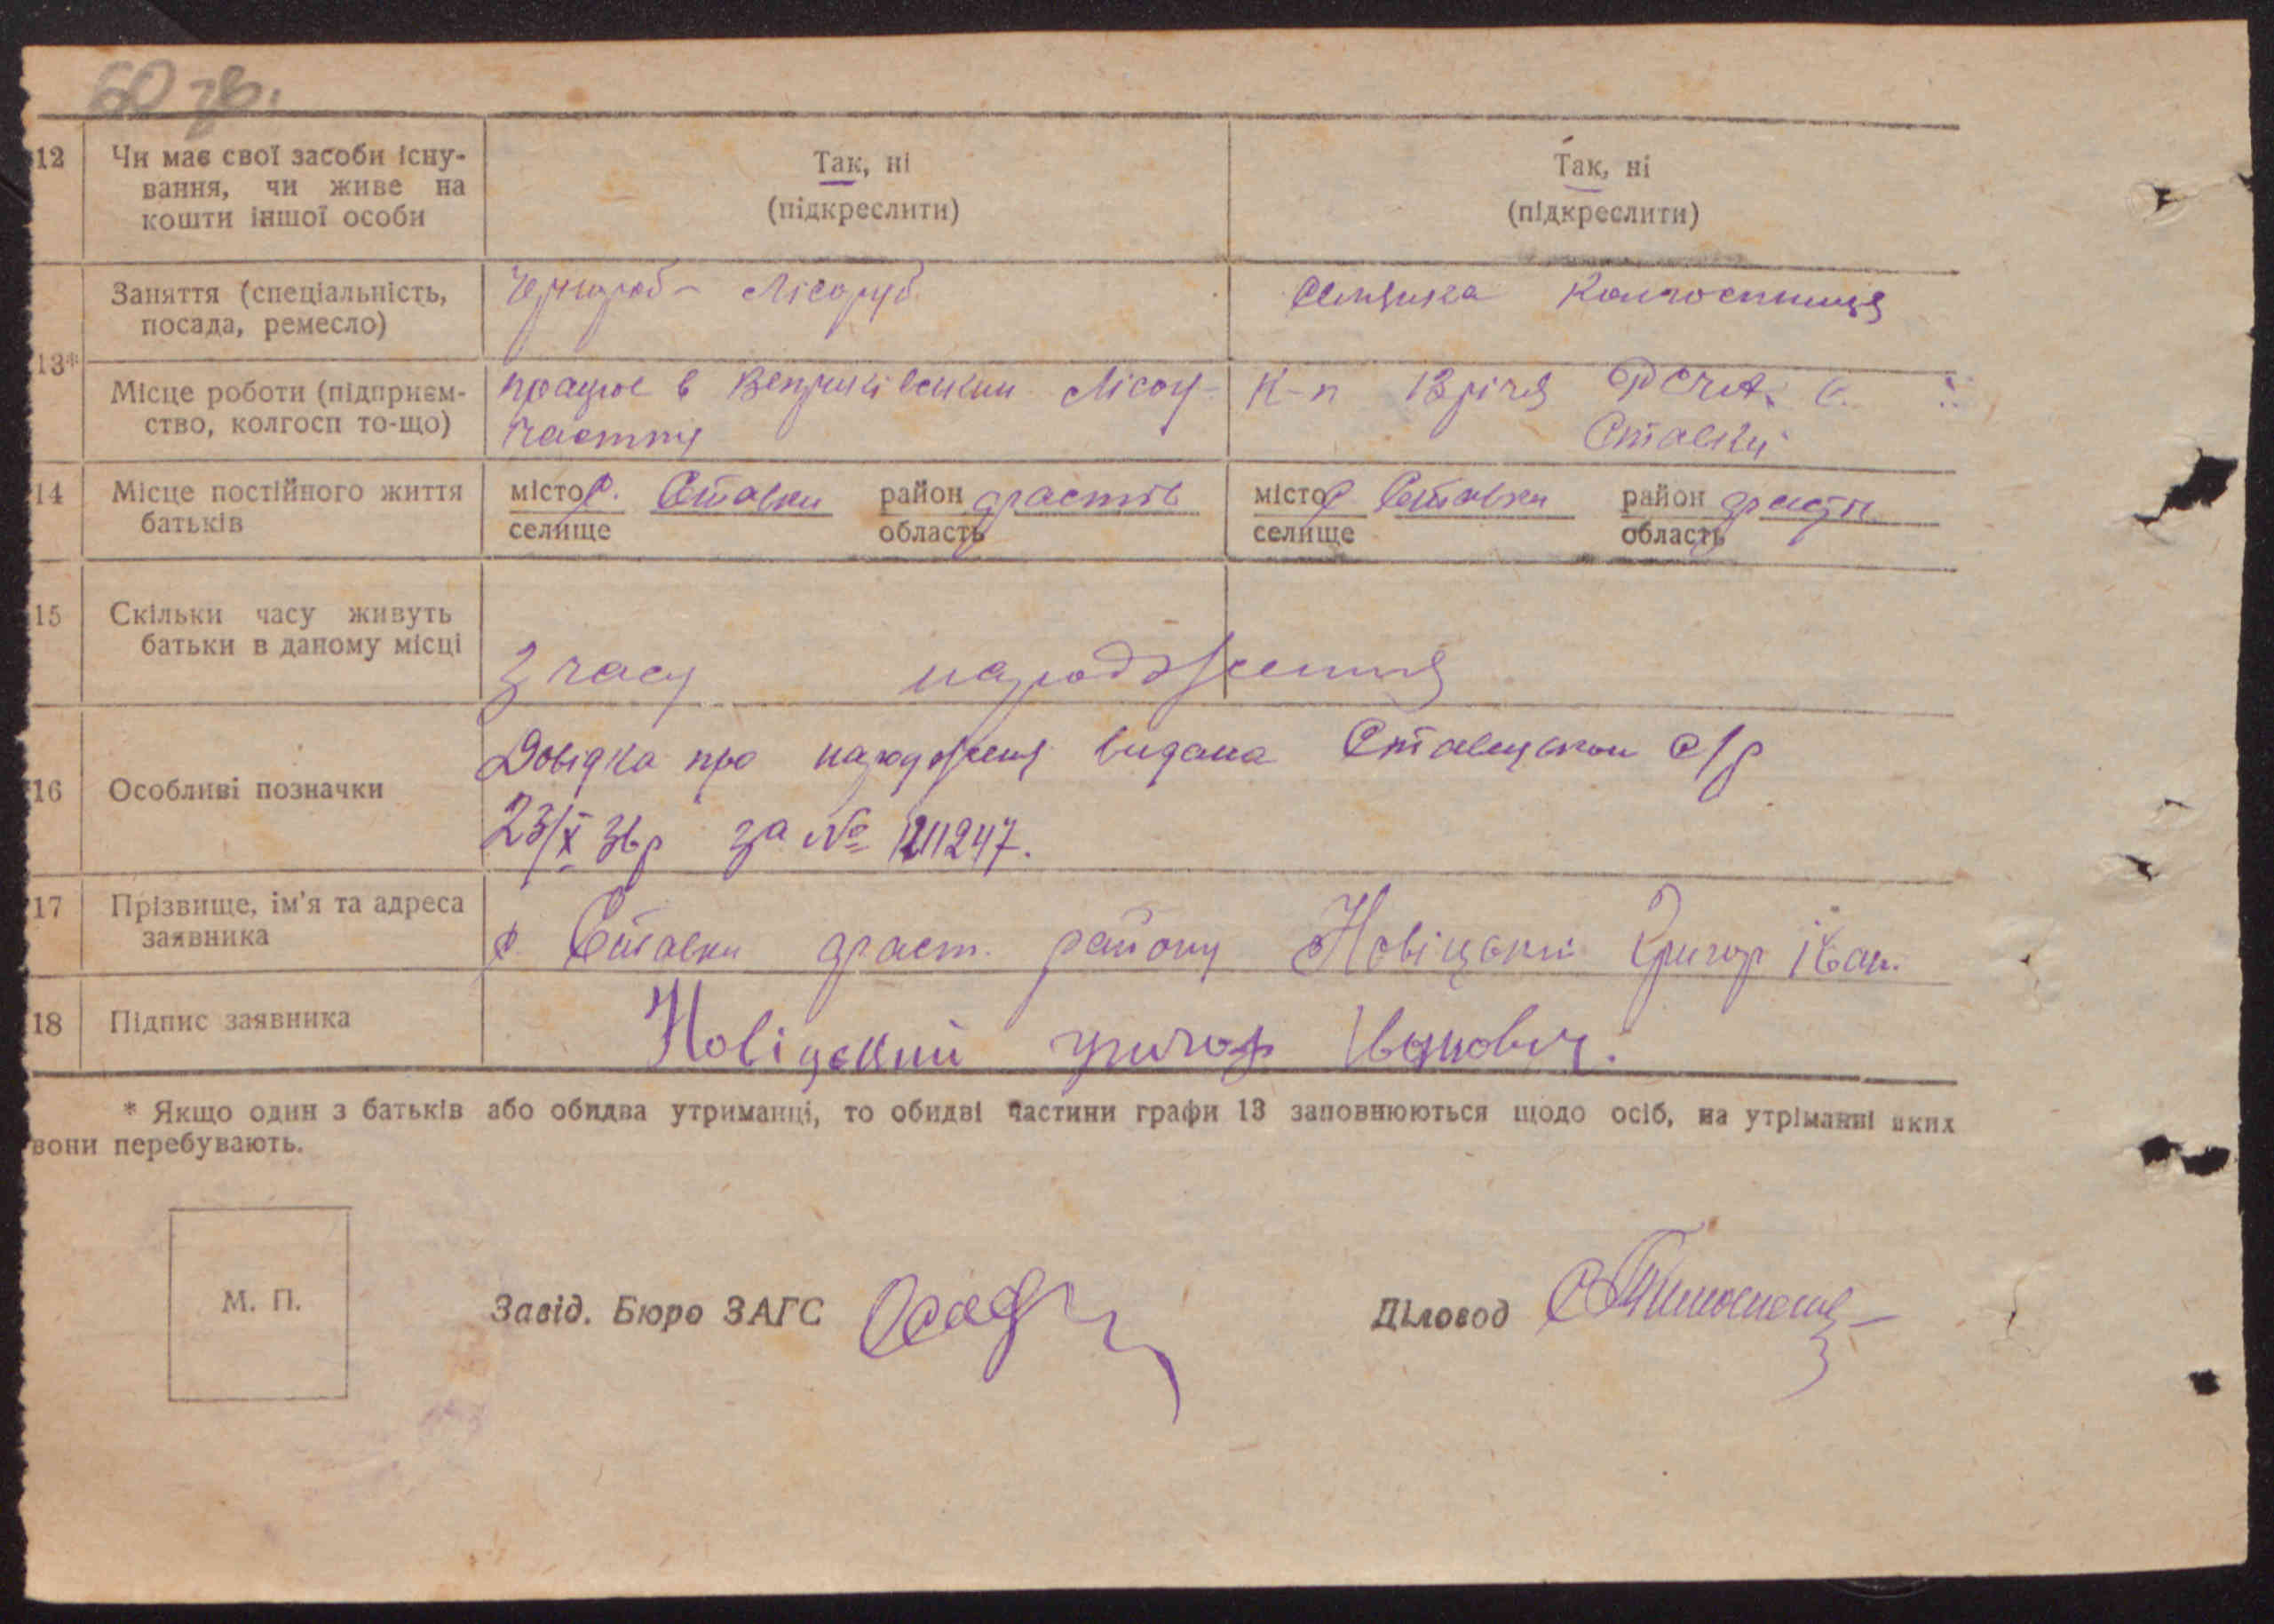 60 зв.
12 Чи має свої засоби існу-
вання, чи живе на
кошти іншої особи
Так, ні
(підкреслити)
Так, ні
(підкреслити)
13*
Заняття (спеціальність,
посада, ремесло)
Чернороб - Лісоруб
Селянка Колгоспниця
Місце роботи (підприєм-
ство, колгосп то-що)
працює в Веприківским Лісоу-
частку
К-п 13 річя РСЧА с.
Ставки
14 Місце постійного життя
батьків
місто с. Ставки район
селище область
місто с Ставки район
селище область
15 Скільки часу живуть
батьки в даному місці
З часу народження
16 Особливі позначки
Довідка про народженя видана Ставецькои с/р
23/X 36 р за №
17 Прізвище, ім'я та адреса
заявника
с. Ставки району Новіцьки Григор Іван.
18 Підпис заявника
Новіцкий григор Иванович.
* Якщо один з батьків або обидва утриманці, то обидві частини графи 13 заповнюються щодо осіб, на утріманні яких
вони перебувають.
М. П.
Завід. Бюро ЗАГС
Діловод